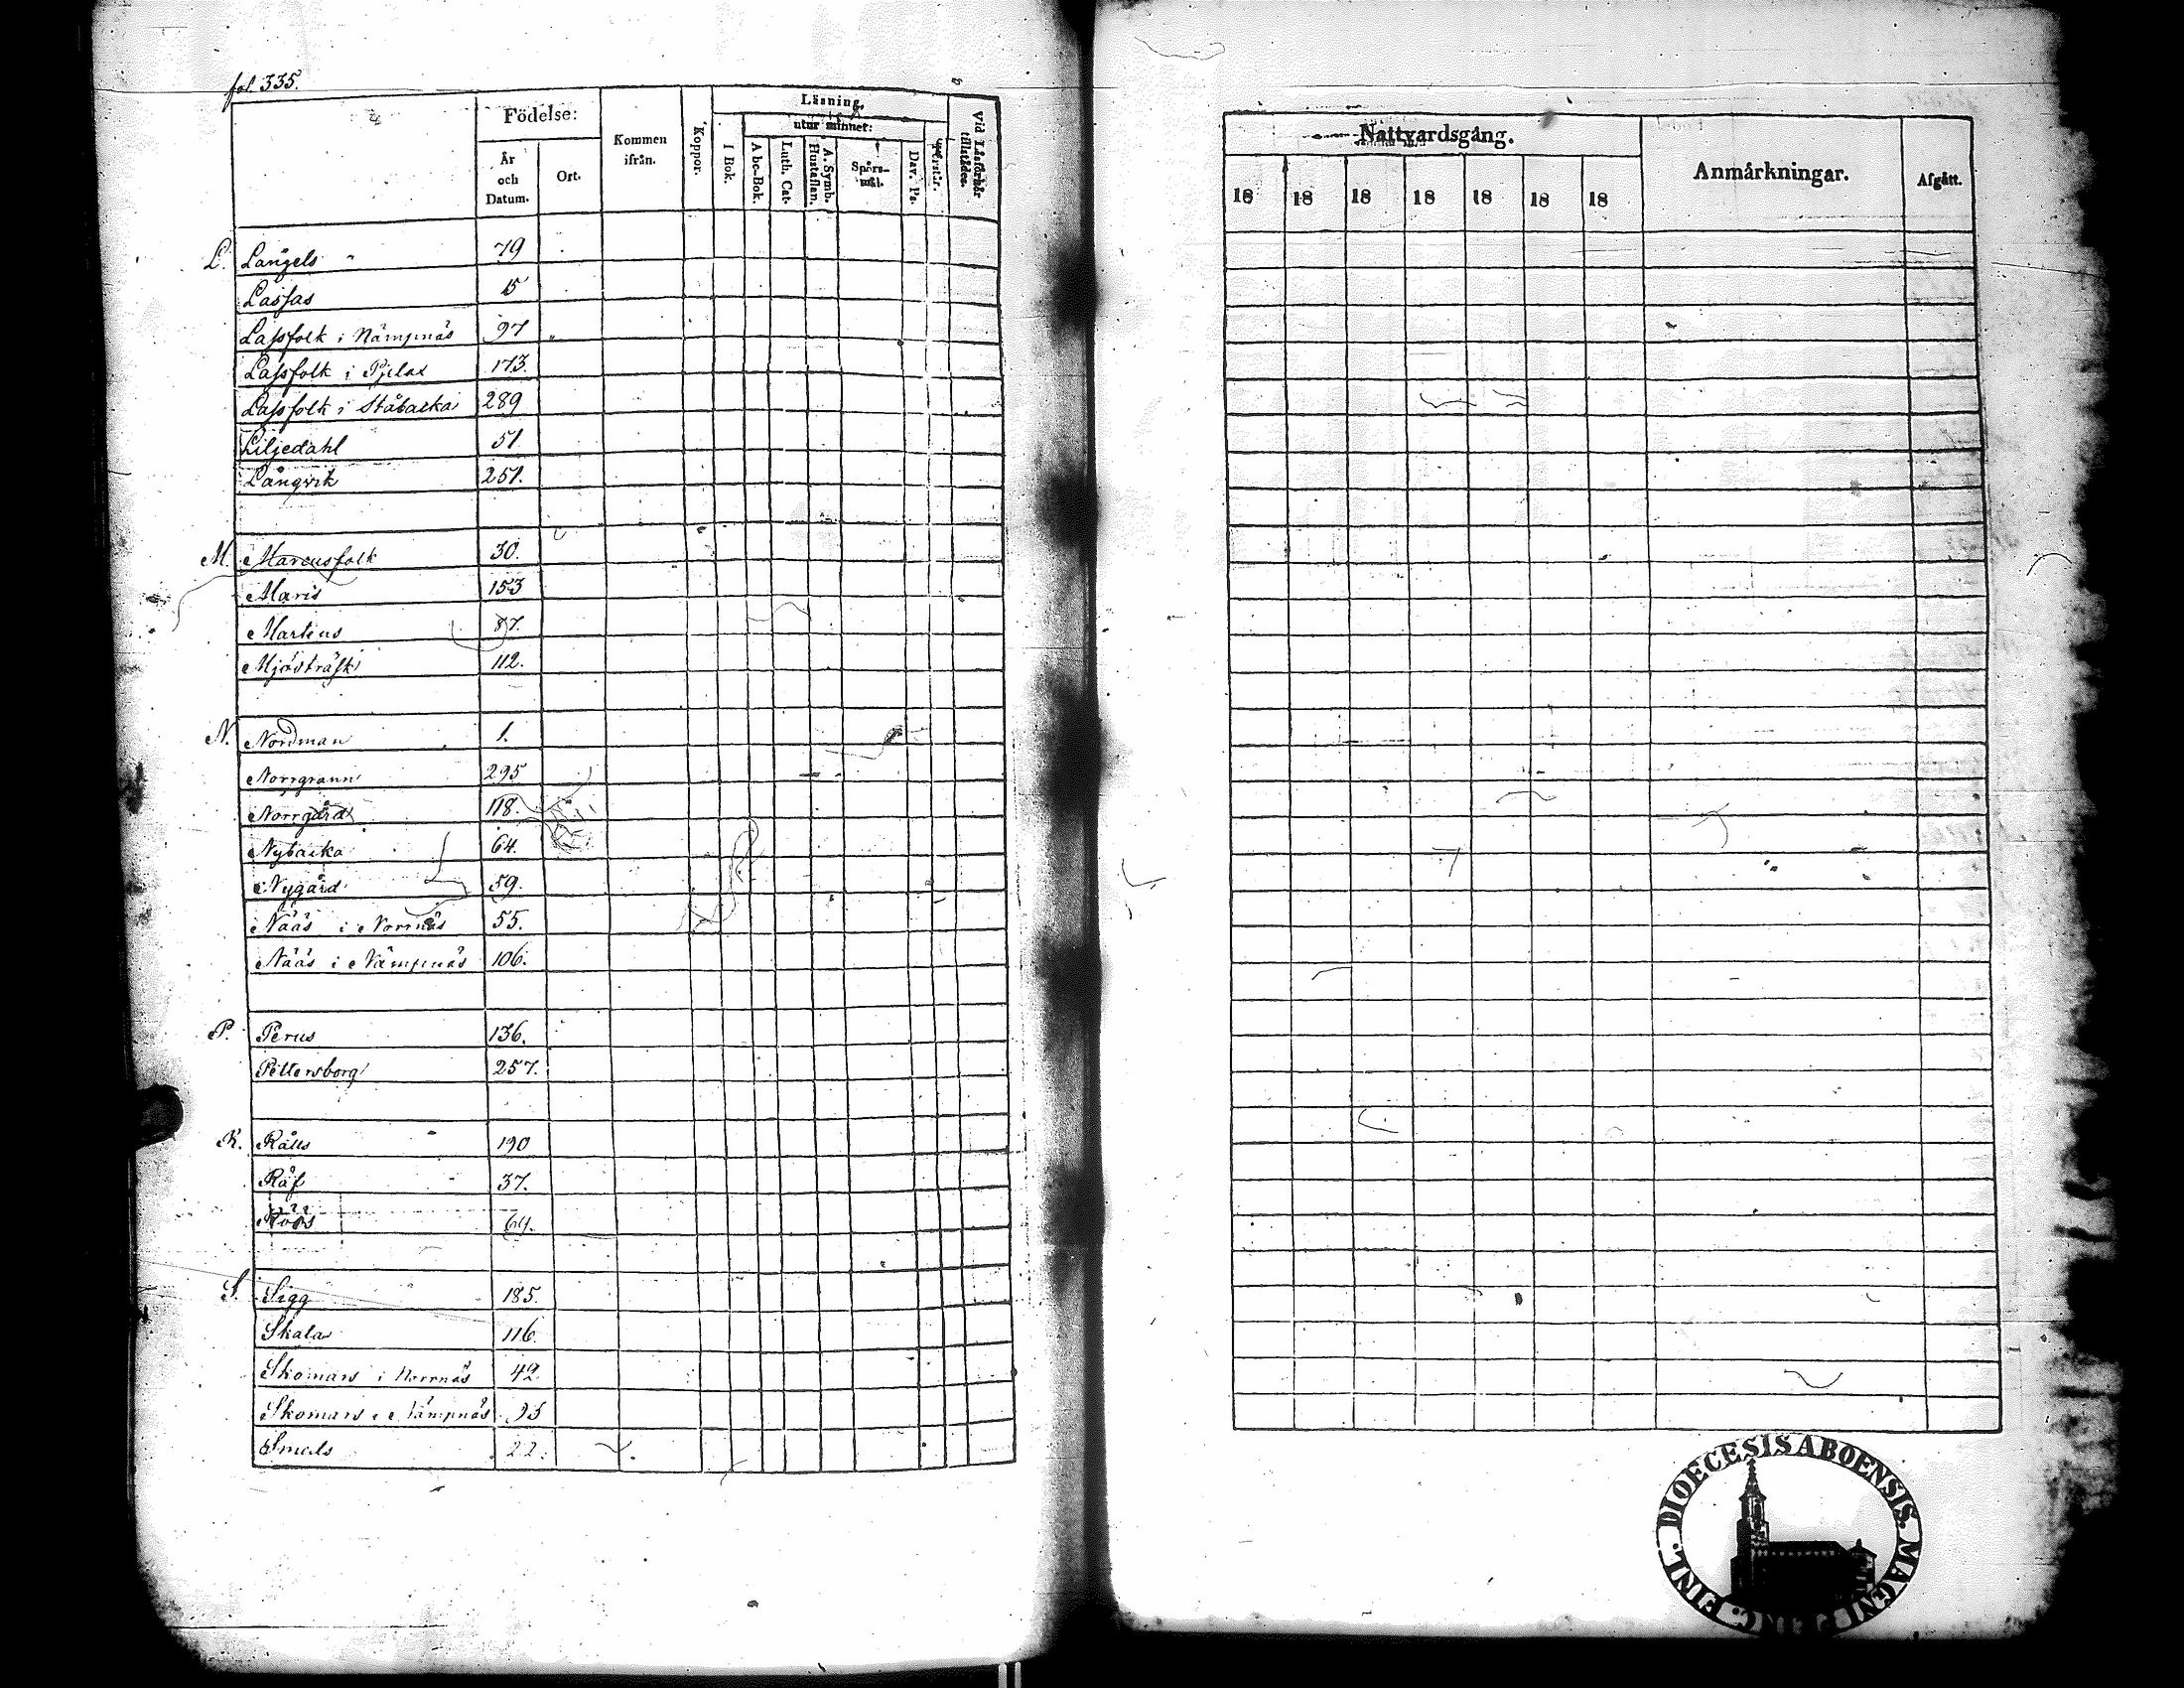 fol. 335.
Födelse:
År och Datum.
Ort.
Kommen ifrån.
Koppor.
Läsning,
utur minnet:
I Bok.
Abc-Bok.
Luth. Cat.
A. Symb. Hustaflan.
Spörs-mål.
Dav. Ps.
Vid Läsförhör tillstädes.
L. Långels 79
Lasfas 15
Lassfolk i Nämpnäs 97
Lassfolk i Pjelax 173.
Lassfolk i Ståbacka 289
Liljedahl 51.
Långvik 251.
M. Marcusfolk 30.
Maris 153
Martens 87.
Mjösträsk 112.
N. Nordman 1.
Norrgrann 295
Norrgård 118.
Nybacka 64.
Nygård 59.
Nääs i Norrnäs 55.
Nääs i Nämpnäs 106.
P. Perus 136.
Pettersborg 257.
R. Rålls 190
Råf 37.
Röös 64.
S. Sigg 185.
Skata 116.
Skomars i Norrnäs 42
Skomars i Nämpnäs 95
Smeds 22.
Nattvardsgång.
18 18 18 18 18 18 18
Anmärkningar.
Afgått.
FINL. DIOECESIS ABOENSIS. MAGNI DUC: